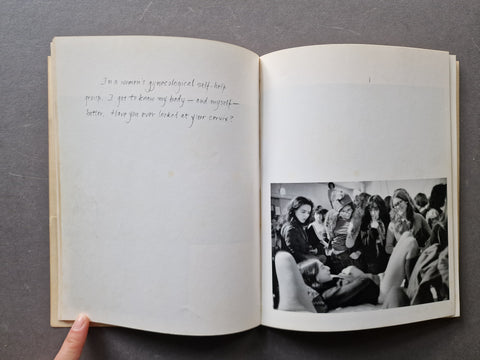 In a women's gynecological self-help
group, I got to know my body — and myself —
better. Have you ever looked at your cervix?